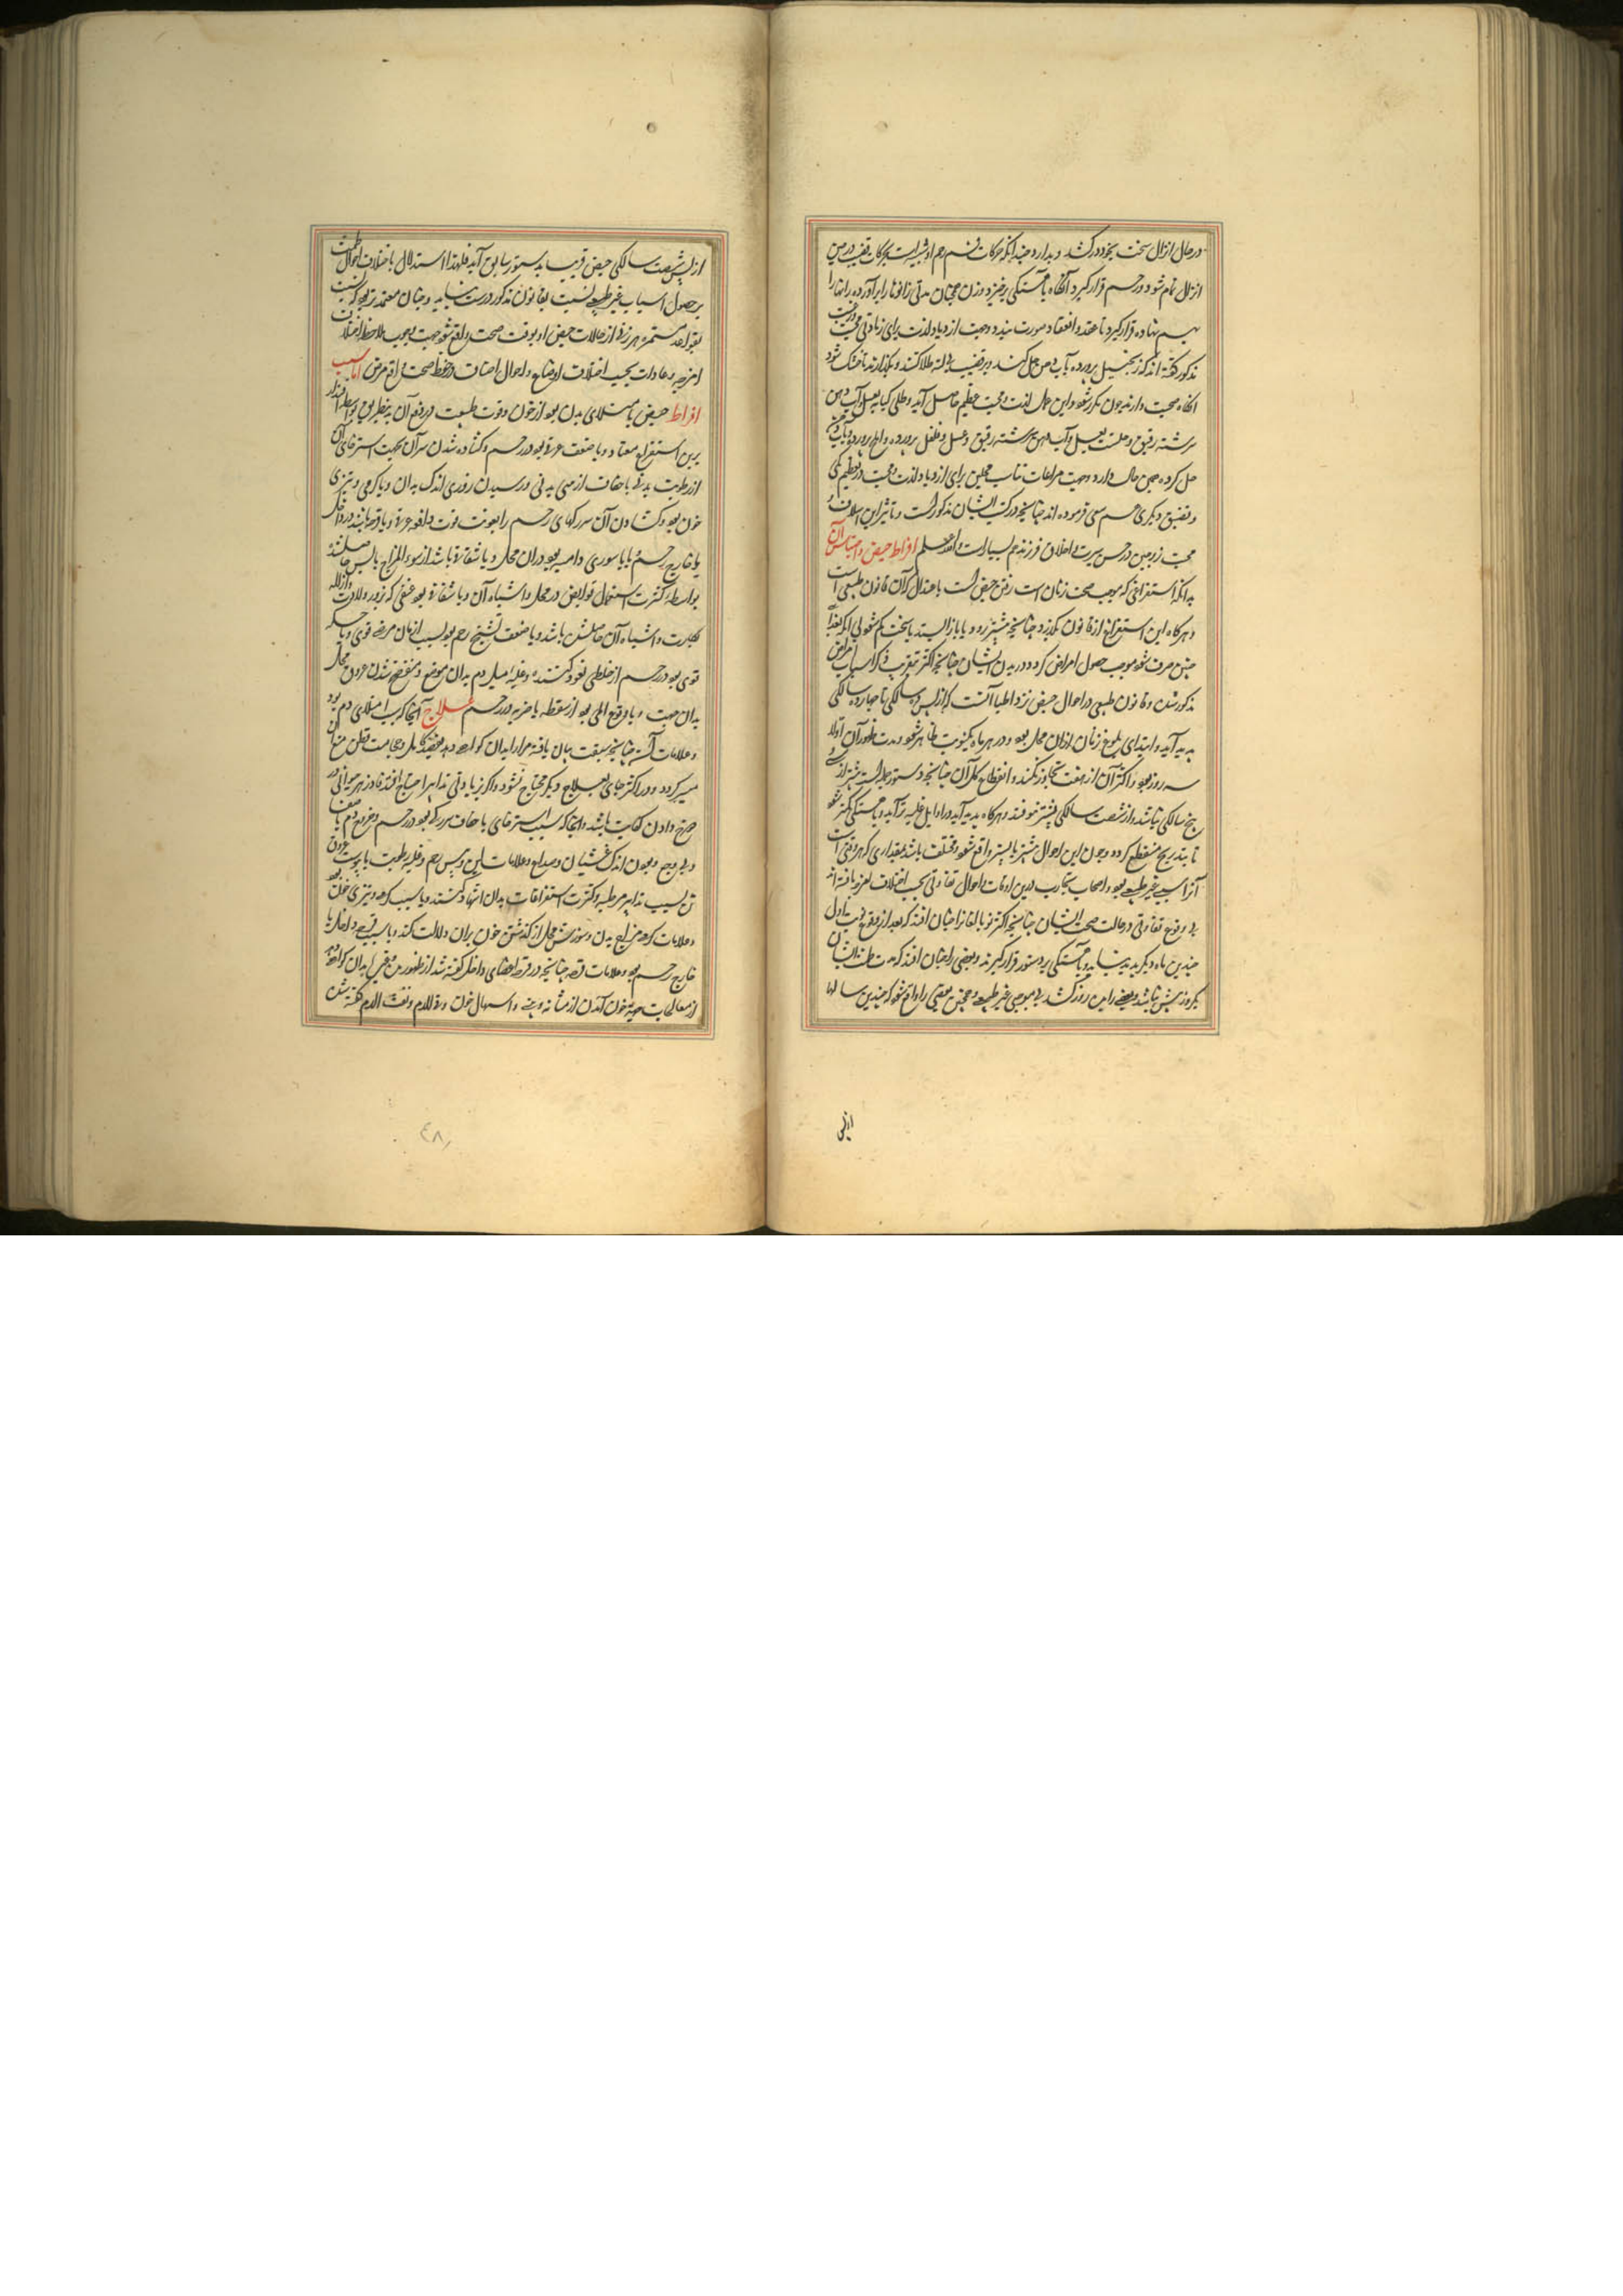 در حال انزال سخت بخود در کشد و بدارد چندانکه حرکات فم رحم او
انزال تمام شود و در رحم قرار گیرد آنگاه بآهستگی برخیزد و زن همچنان مدتی زانوها را برآورده رانها را
بهم نهاده قرار گیرد تا عقد و انعقاد صورت بندد و جهت ازدیاد لذت برای زیادتی محبت
مذکور گفته اند که زنجبیل پرورده بآب دهن حل کنند و بر قضیب طلا کنند و بگذارند تا خشک شود
آنگاه صحبت دارند چون مکرر شود این عمل لذت و محبت عظیم حاصل آید و طلی کبابه بعسل و آب دهن
سرشته رقیق و حلتیت بعسل و آب دهن سرشته رقیق و عسل و فلفل پرورده
حل کرده همین حال دارد و جهت مراعات تناسب محلین برای ازدیاد لذت و محبت در تعظیم یکی
و تضییق دیگری هم سعی فرموده اند چنانچه در کتب ایشان مذکور است و تأثیر این
محبت زوجین در حسن سیرت و اخلاق فرزند هم بسیار است والله اعلم افراط حیض و احتباس آن
بدانکه استفراغی که موجب صحت زنان است رفتن حیض است باعتدال که آن قانون طبیعی است
و هرگاه این استفراغ از قانون بگذرد چنانچه بیشتر رود و یا باز ایستد یا سخت کم شود بی آنکه بغذای
جنین صرف شود موجب حصول امراض گردد در بدن ایشان چنانچه اکثر بتقریب ذکر اسباب امراض
مذکور شد و قانون طبیعی در احوال حیض نزد اطبا آنست که از پس ده سالگی تا چهارده سالگی
پدید آید و ابتدای بلوغ زنان از آن محل بود و در هر ماه یک نوبت ظاهر شود و مدت ظهور آن اولا
سه روز بود و اکثر آن از هفت تجاوز نکند و انقطاع کل آن چنانچه دستور جبلی است پیشتر از سی و
پنج سالگی نباشد و از شصت سالگی پیشتر نیوفتد و هرگاه پدید آید در اوایل غلبه تر آید و بآهستگی کمتر شود
تا بتدریج منقطع گردد و چون این احوال پیشتر یا پستر واقع شود و مختلف باشد بمقداری که هر وقتی است
آنرا سببی غیر طبیعی بود و اصحاب تجارب درین اوقات و احوال تفاوتی بحسب اختلاف امزجه یافته اند
بی وقوع تفاوتی در حالت صحت ایشان چنانچه اکثر نو بالغانرا چنان افتد که بعد از وقوع نوبت اول
چندین ماه دیگر پدید نیاید و بآهستگی بر دستور قرار گیرند و بعضی را چنان افتد که مدت طمث ایشان
یکروز بیش نباشد و بعضی را بده روز کشد بی موجبی غیر طبیعی و همچنین بعضی را واقع شود که چندین سالها
از پس
از پس شصت سالگی حیض قریب بدستور سابق آید فلهذا استدلال باختلاف احوال طمث
بر حصول اسباب غیر طبیعی نسبت بقانون مذکور درست نیاید و چنان معتمد تر بود که نسبت
بقواعد مستمره هر زنی از حالات حیض او بوقت صحت واقع شود جهت وجوب ملاحظه اختلاف
امزجه و عادات بحسب اختلاف اوضاع و احوال اصناف در حفظ صحت و رفع مرض اما سبب
افراط حیض یا امتلای بدن بود از خون و قوت طبیعت در دفع آن بدین طریق بواسطه اعتیاد
برین استفراغ معتاد و یا ضعف عروق بود در رحم و گشاده شدن سر آن بجهت استرخای آن
از رطوبت بدنی یا جفاف از یبسی بدنی و رسیدن زوری اندک بدان و یا گرمی و تیزی
خون بود و گشادن آن سر رگهای رحم را بعونت قوت دافعه عروق و یا قرحه باشد در داخل
یا خارج رحم و یا باسوری دامیه بود در آن محل و یا شقاقی باشد از سوء المزاج یابس حاصل شده
بواسطه کثرت استعمال قوابض در محل و اشباه آن و یا شقاقی بود عنفی که بزور ولادت و ازاله
بکارت و اشباه آن حاصلش باشد و یا ضعف تشنج رحم بود بسبب ازمان مرضی قوی و یا حکه
قوی بود در رحم از خلطی نفوذ کننده و غلبه میل دم بدان موضع و منفتح شدن عروق محل
بدان جهت و یا وقوع المی بود از سقطه یا ضربه در رحم علاج آنجا که سبب امتلای دم بود
و علامات آن چنانچه سبقت بیان یافته مرارا بدان گواهی دهد بفصد اکحل و حجامت قطن منع آن
میسر گردد و در اکثر جای بعلاج دیگر محتاج نشود و اگر بزیادتی تدابیر احتیاج افتد
خرج دادن کفایت باشد و آنجا که سبب استرخای یا جفاف سر رگها بود در رحم و خروج دم صاف
و بی وجع و بدون اندک غشیان و صداع و علامات لین و یبس رحم و غلبه رطوبت یا یبوست عروق
تن بسبب تدابیر مرطبه و کثرت استفراغات بدان اشهاد کنند و یا سبب گرمی و تیزی خون بود
و علامات گرمی مزاج بدن و سوزش محل از گذشتن خون بر آن دلالت کند و یا سبب قرحه داخل یا
خارج رحم بود و علامات قرحه چنانچه در قرحه اعضای داخل گفته شد از ظهور دم و قیح بدان گواهی دهد
از معالجات حبس خون آمدن از مثانه و بینی و اسهال خون و قی الدم و نفث الدم گفته شد
٤٨